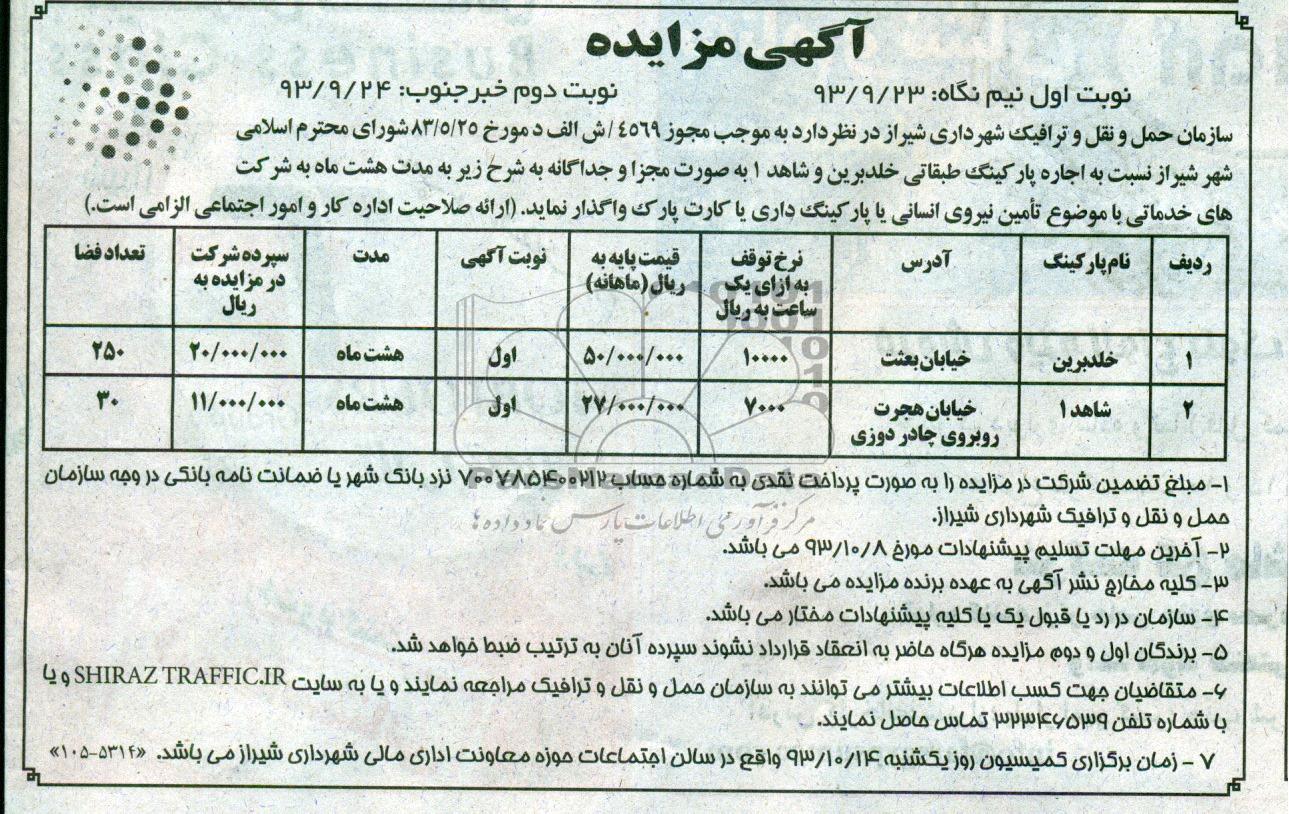 آگهی مزایده
نوبت اول نیم نگاه: ۹۳/۹/۲۳ نوبت دوم خبرجنوب: ۹۳/۹/۲۴
سازمان حمل و نقل و ترافیک شهرداری شیراز در نظردارد به موجب مجوز ٤٥٦٩/ش الف د مورخ ۸۳/۵/۲۵ شورای محترم اسلامی
شهر شیراز نسبت به اجاره پارکینگ طبقاتی خلدبرین و شاهد ۱ به صورت مجزا و جداگانه به شرح زیر به مدت هشت ماه به شرکت
های خدماتی با موضوع تأمین نیروی انسانی یا پارکینگ داری یا کارت پارک واگذار نماید. (ارائه صلاحیت اداره کار و امور اجتماعی الزامی است.)
ردیف نام پارکینگ آدرس نرخ توقف به ازای یک ساعت به ریال قیمت پایه به ریال (ماهانه) نوبت آگهی مدت سپرده شرکت در مزایده به ریال تعداد فضا
۱ خلدبرین خیابان بعثت ۱۰۰۰۰ ۵۰/۰۰۰/۰۰۰ اول هشت ماه ۲۰/۰۰۰/۰۰۰ ۲۵۰
۲ شاهد ۱ خیابان هجرت روبروی چادر دوزی ۷۰۰۰ ۲۷/۰۰۰/۰۰۰ اول هشت ماه ۱۱/۰۰۰/۰۰۰ ۳۰
۱- مبلغ تضمین شرکت در مزایده را به صورت پرداخت نقدی به شماره حساب ۷۰۰۷۸۵۴۰۰۲۱۲ نزد بانک شهر یا ضمانت نامه بانکی در وجه سازمان
حمل و نقل و ترافیک شهرداری شیراز.
مرکز فرآوری اطلاعات پارس نماد داده ها
۲- آخرین مهلت تسلیم پیشنهادات مورخ ۹۳/۱۰/۸ می باشد.
۳- کلیه مخارج نشر آگهی به عهده برنده مزایده می باشد.
۴- سازمان در رد یا قبول یک یا کلیه پیشنهادات مختار می باشد.
۵- برندگان اول و دوم مزایده هرگاه حاضر به انعقاد قرارداد نشوند سپرده آنان به ترتیب ضبط خواهد شد.
۶- متقاضیان جهت کسب اطلاعات بیشتر می توانند به سازمان حمل و نقل و ترافیک مراجعه نمایند و یا به سایت SHIRAZ TRAFFIC.IR و یا
با شماره تلفن ۳۲۳۴۶۵۳۹ تماس حاصل نمایند.
۷ - زمان برگزاری کمیسیون روز یکشنبه ۹۳/۱۰/۱۴ واقع در سالن اجتماعات حوزه معاونت اداری مالی شهرداری شیراز می باشد. «۱۰۵-۵۳۱۴»